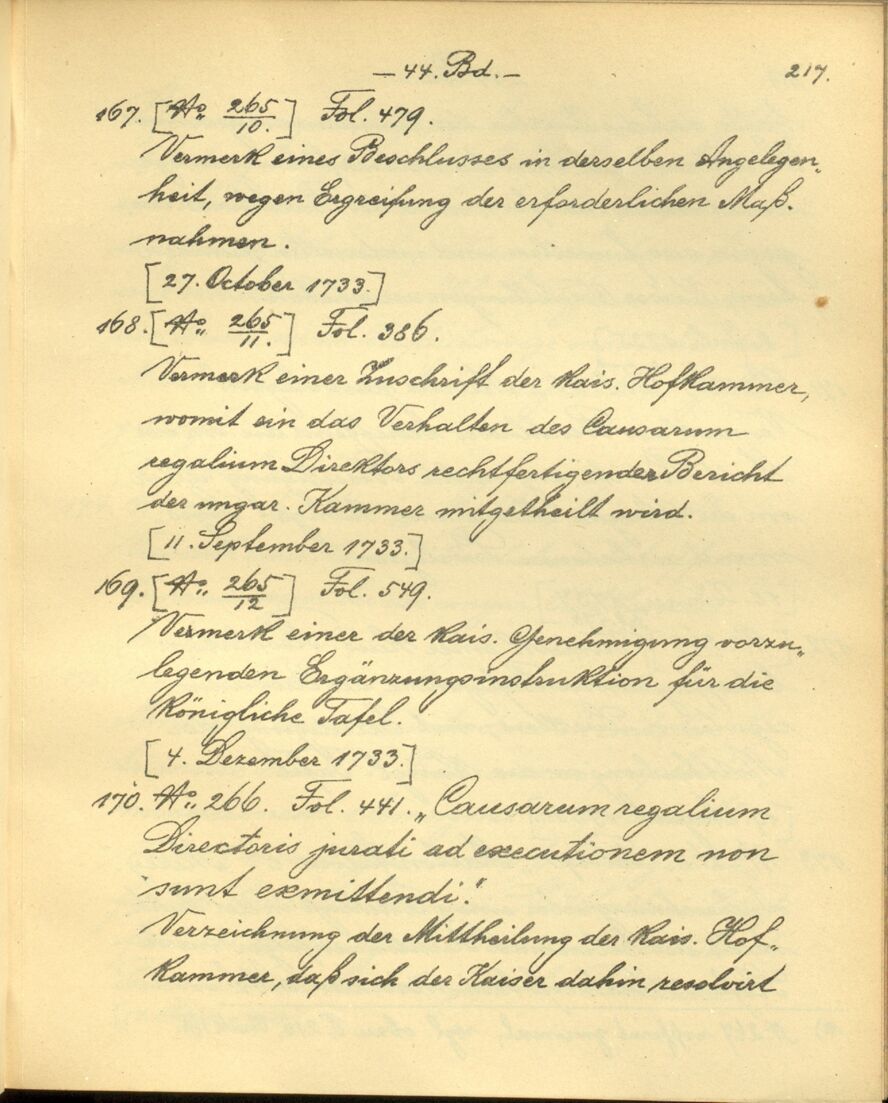 — 44. Bd. — 217.
167. [No. 265/10.] Fol. 479.
Vermerk eines Beschlusses in derselben Angelegen„
heit, wegen Ergreifung der erforderlichen Maß-
nahmen.
[27. October 1733.]
168. [No. 265/11.] Fol. 386.
Vermerk einer Zuschrift der kais. Hofkammer,
womit ein das Verhalten des Causarum
regalium Direktors rechtfertigender Bericht
der ungar. Kammer mitgetheilt wird.
[11. September 1733.]
169. [No. 265/12] Fol. 549.
Vermerk einer der kais. Genehmigung vorzu„
legenden Ergänzungsinstruktion für die
königliche Tafel.
[4. Dezember 1733.]
170. No. 266. Fol. 441. „Causarum regalium
Directoris jurati ad executionem non
sunt exmittendi."
Verzeichnung der Mittheilung der kais. Hof„
kammer, daß sich der Kaiser dahin resolvirt